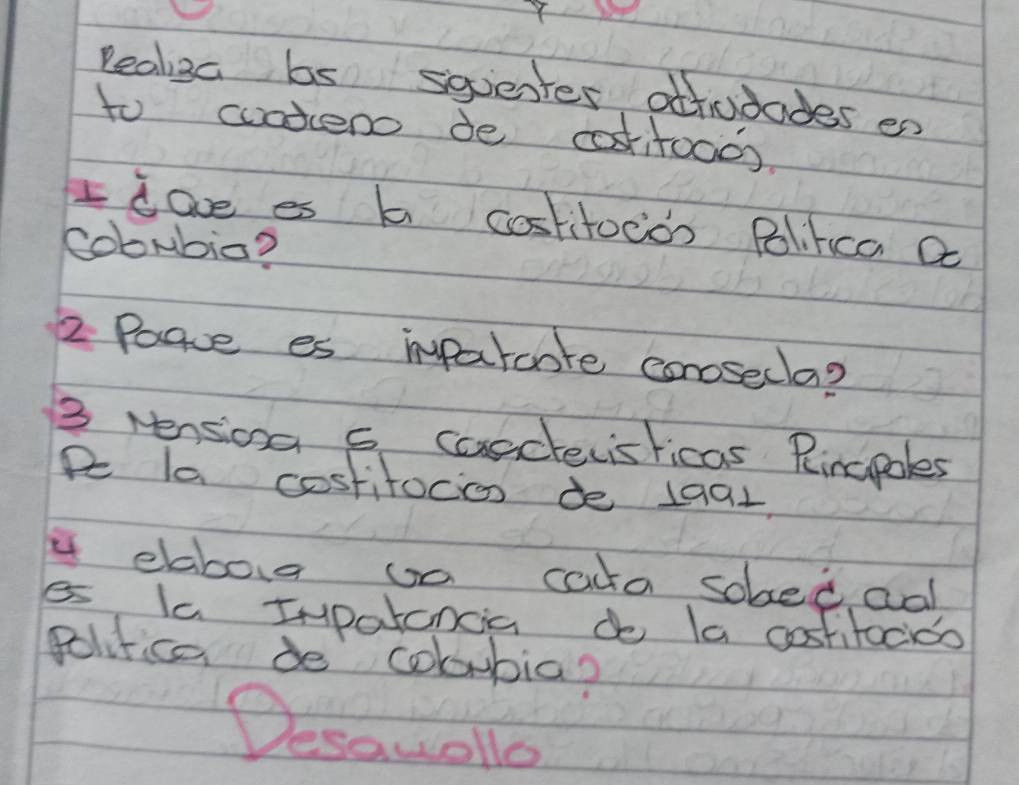 Realiza los siguientes attividades en
tu cuaderno de costitoción.
1 ¿Que es la costitoción Política De
Colombia?
2 Poque es impartante conosecla?
3 Mensiona 5 caracteristicas Principales
De la costitocion de 1991.
4 elabora un carta sobre ¿cual
es la Impatancia de la costitoción
Politica de colombia?
Desarrollo